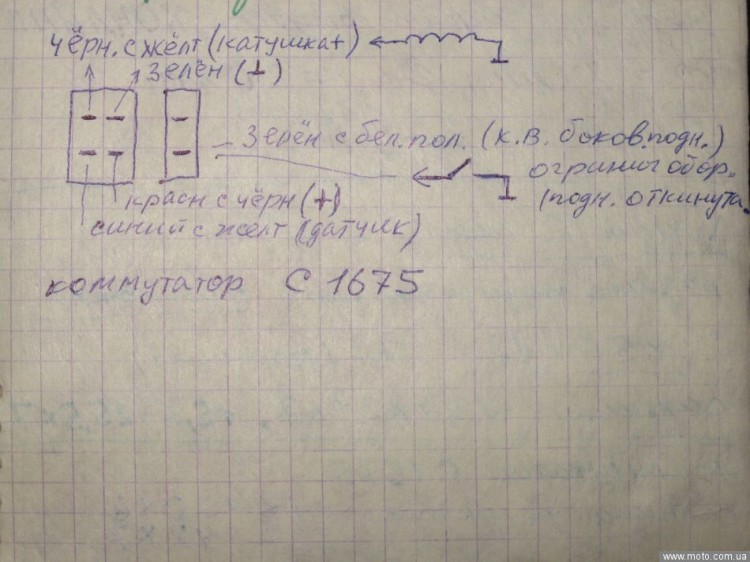 чёрн. с жёлт (катушка+)
зелён (⊥)
зелён с бел. пол. (К.В. боков. подн.)
огранич обор.
(подн. откинута.
красн с чёрн (+)
синий с жёлт (датчик)
коммутатор С 1675
www.moto.com.ua